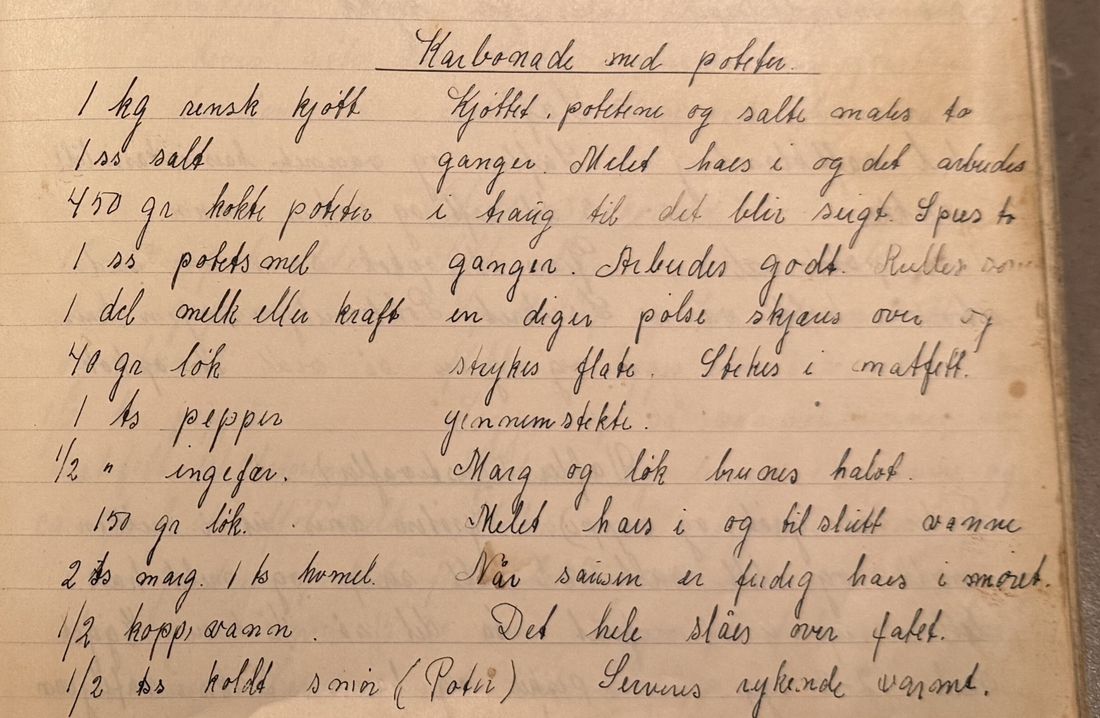 Karbonade med poteter.
1 kg rensk kjøtt Kjøttet, potetene og salte males to
1 ss salt ganger. Melet haes i og det arbeides
450 gr kokte poteter i traug til det blir seigt. Spees to
1 ss potetsmel ganger. Arbeides godt. Rulles som
1 del melk eller kraft en diger pølse skjæres over og
40 gr løk strykes flate. Stekes i matfett.
1 ts pepper gjennemstekte.
1/2 " ingefær. Marg og løk brunes halvt.
150 gr løk. Melet haes i og til slutt vanne
2 ts marg. 1 ts hvmel. Når sausen er ferdig haes i smøret.
1/2 kopp vann. Det hele slåes over fatet.
1/2 ss koldt smør Serveres rykende varmt.